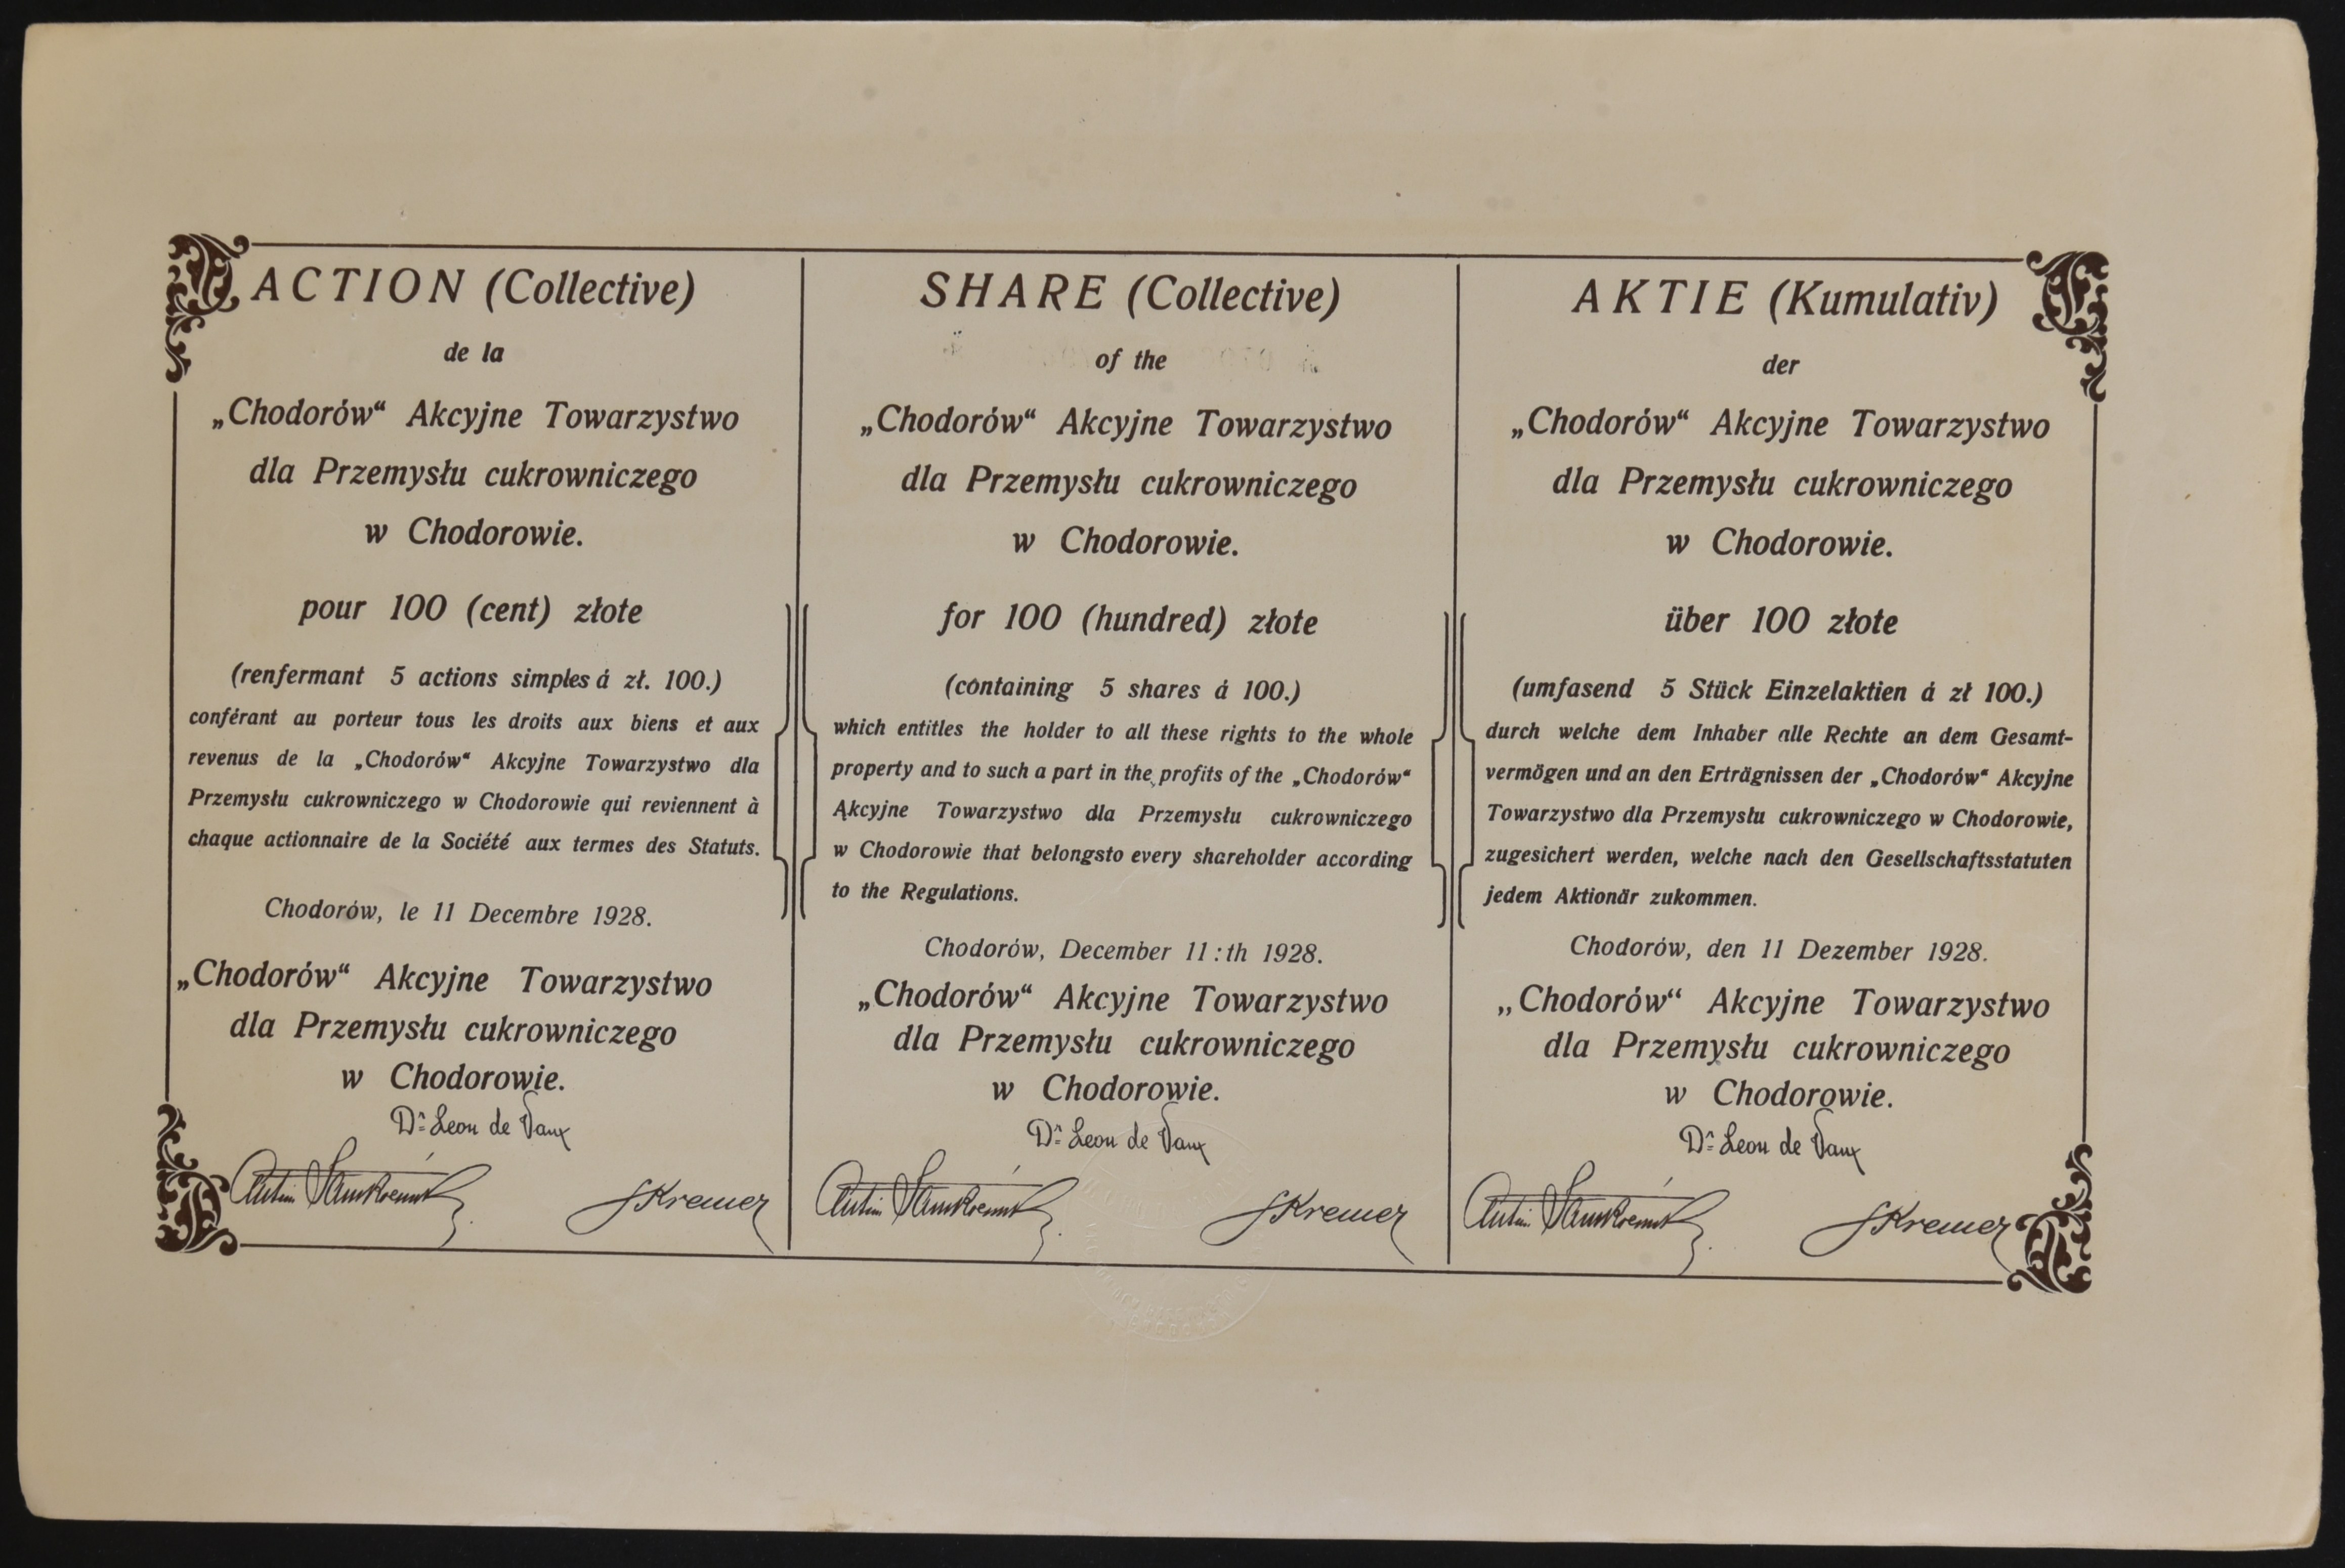 ACTION (Collective)
de la
„Chodorów“ Akcyjne Towarzystwo
dla Przemysłu cukrowniczego
w Chodorowie.
pour 100 (cent) złote
(renfermant 5 actions simples á zł. 100.)
conférant au porteur tous les droits aux biens et aux
revenus de la „Chodorów“ Akcyjne Towarzystwo dla
Przemysłu cukrowniczego w Chodorowie qui reviennent à
chaque actionnaire de la Société aux termes des Statuts.
Chodorów, le 11 Decembre 1928.
„Chodorów“ Akcyjne Towarzystwo
dla Przemysłu cukrowniczego
w Chodorowie.
Dr Leon de Vaux
SKremer
SHARE (Collective)
of the
„Chodorów“ Akcyjne Towarzystwo
dla Przemysłu cukrowniczego
w Chodorowie.
for 100 (hundred) złote
(containing 5 shares á 100.)
which entitles the holder to all these rights to the whole
property and to such a part in the profits of the „Chodorów“
Akcyjne Towarzystwo dla Przemysłu cukrowniczego
w Chodorowie that belongsto every shareholder according
to the Regulations.
Chodorów, December 11:th 1928.
„Chodorów“ Akcyjne Towarzystwo
dla Przemysłu cukrowniczego
w Chodorowie.
Dr Leon de Vaux
SKremer
AKTIE (Kumulativ)
der
„Chodorów“ Akcyjne Towarzystwo
dla Przemysłu cukrowniczego
w Chodorowie.
über 100 złote
(umfasend 5 Stück Einzelaktien á zł 100.)
durch welche dem Inhaber alle Rechte an dem Gesamt-
vermögen und an den Erträgnissen der „Chodorów“ Akcyjne
Towarzystwo dla Przemysłu cukrowniczego w Chodorowie,
zugesichert werden, welche nach den Gesellschaftsstatuten
jedem Aktionär zukommen.
Chodorów, den 11 Dezember 1928.
„Chodorów“ Akcyjne Towarzystwo
dla Przemysłu cukrowniczego
w Chodorowie.
Dr Leon de Vaux
SKremer